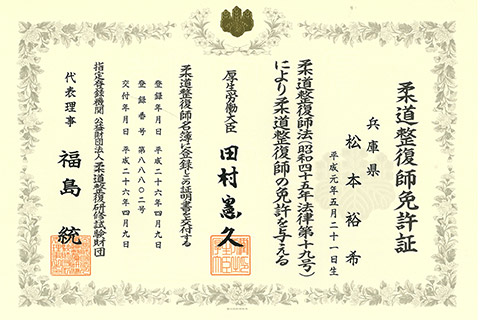 柔道整復師免許証
兵庫県
松本裕希
平成元年五月二十一日生
柔道整復師法(昭和四十五年法律第十九号)
により柔道整復師の免許を与える
厚生労働大臣 田村憲久
柔道整復師名簿に登録しこの証明書を交付する
登録年月日 平成二十六年四月九日
登録番号 第八八〇二号
交付年月日 平成二十六年四月九日
指定登録機関 公益財団法人柔道整復研修試験財団
代表理事 福島統